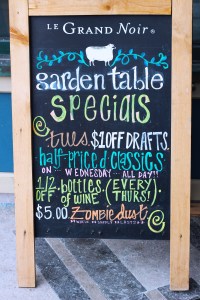 LE GRAND NOIR®
garden table
specials
tues. $1 OFF DRAFTS
half-priced classics
ON WEDNESDAY ALL DAY!!
1/2 bottles (EVERY)
OFF OF WINE THURS.
$5.00 Zombie dust
WHILE SUPPLY LASTS